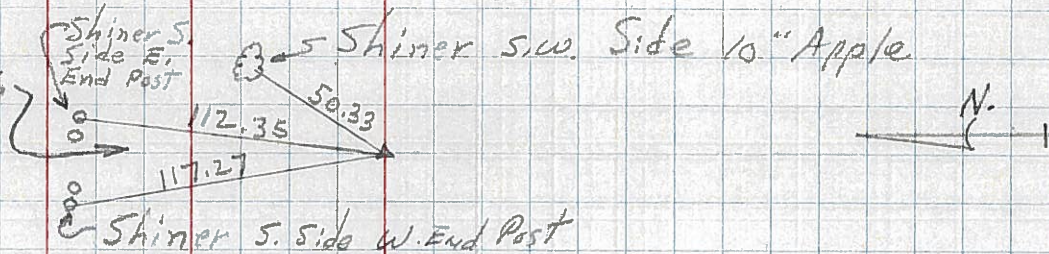 Shiner S.
Side E.
End Post
Shiner S.W. Side 10" Apple
50.33
112.35
117.27
N.
Shiner S. Side W. End Post